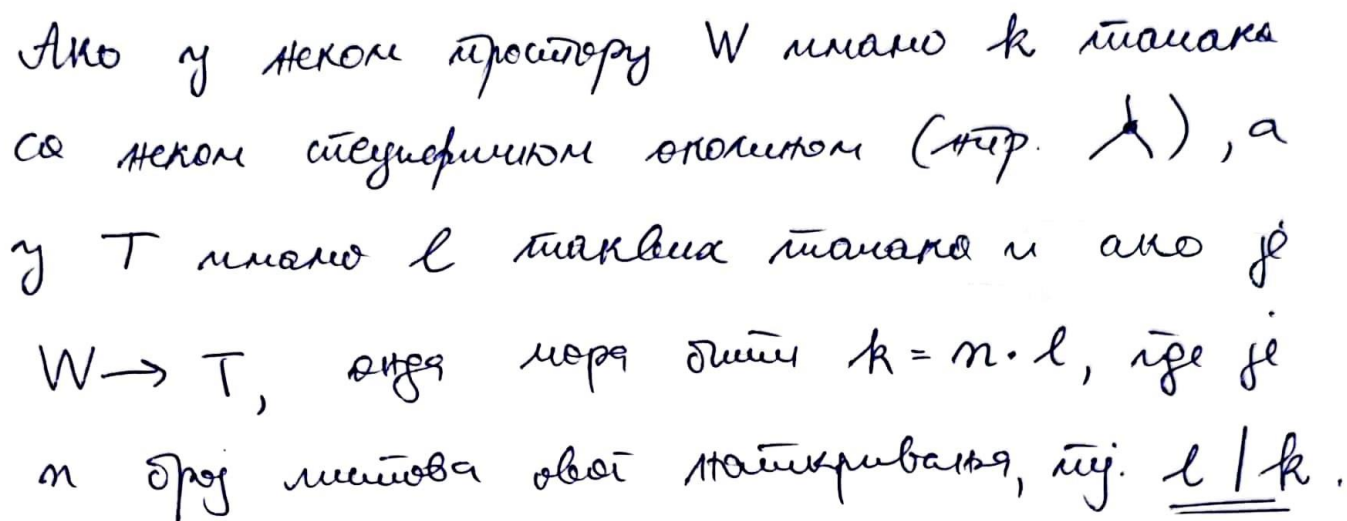 Ако у неком простору W имамо k тачака
са неком специфичном околином (нпр. ), а
у T имамо l таквих тачака и ако је
W → T, онда мора бити k = n · l, где је
n број листова овог наткривања, тј. l | k.